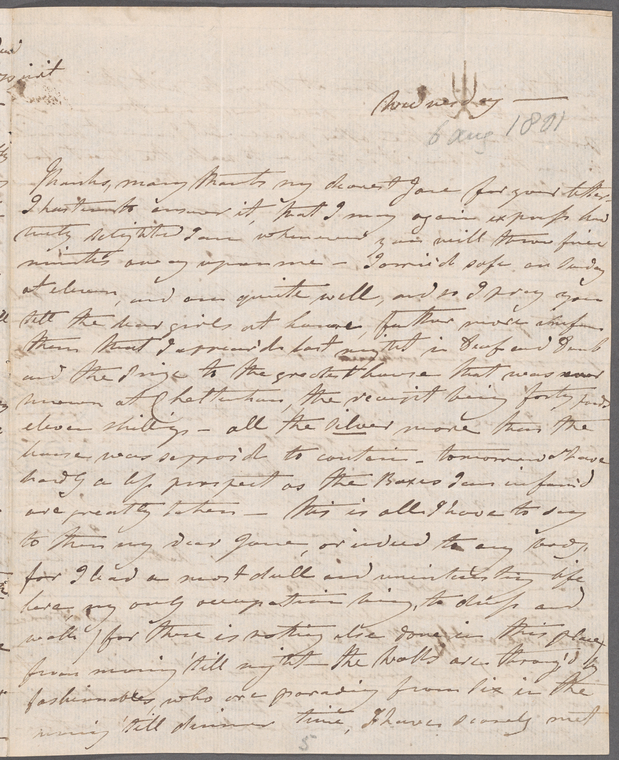 Wednesday
6 Aug 1801
Thanks, many thanks my dearest Jane for your letter
I hasten to answer it, that I may again express how
truly delighted I am whenever you will throw five
minutes away upon me - I arrived safe on Sunday
at eleven, and am quite well, and so I pray you
tell the dear girls at home, farther more inform
them that I appeared last night in Deaf and Dumb
and the Prize to the greatest house that was ever
known at Cheltenham, the receipt being forty pounds
eleven shillings - all the Silver more than the
house was supposed to contain - tomorrow I have
hardly a less prospect as the Boxes I am informed
are greatly taken - this is all I have to say
to them my dear Jane, or indeed to any body,
for I lead a most dull and uninteresting life
here my only occupation being, to dress and
walk, for there is nothing else done in this place
from morning 'till night the walks are throng'd by
fashionables, who are parading from six in the
morning 'till dinner time, I have scarcely met
5